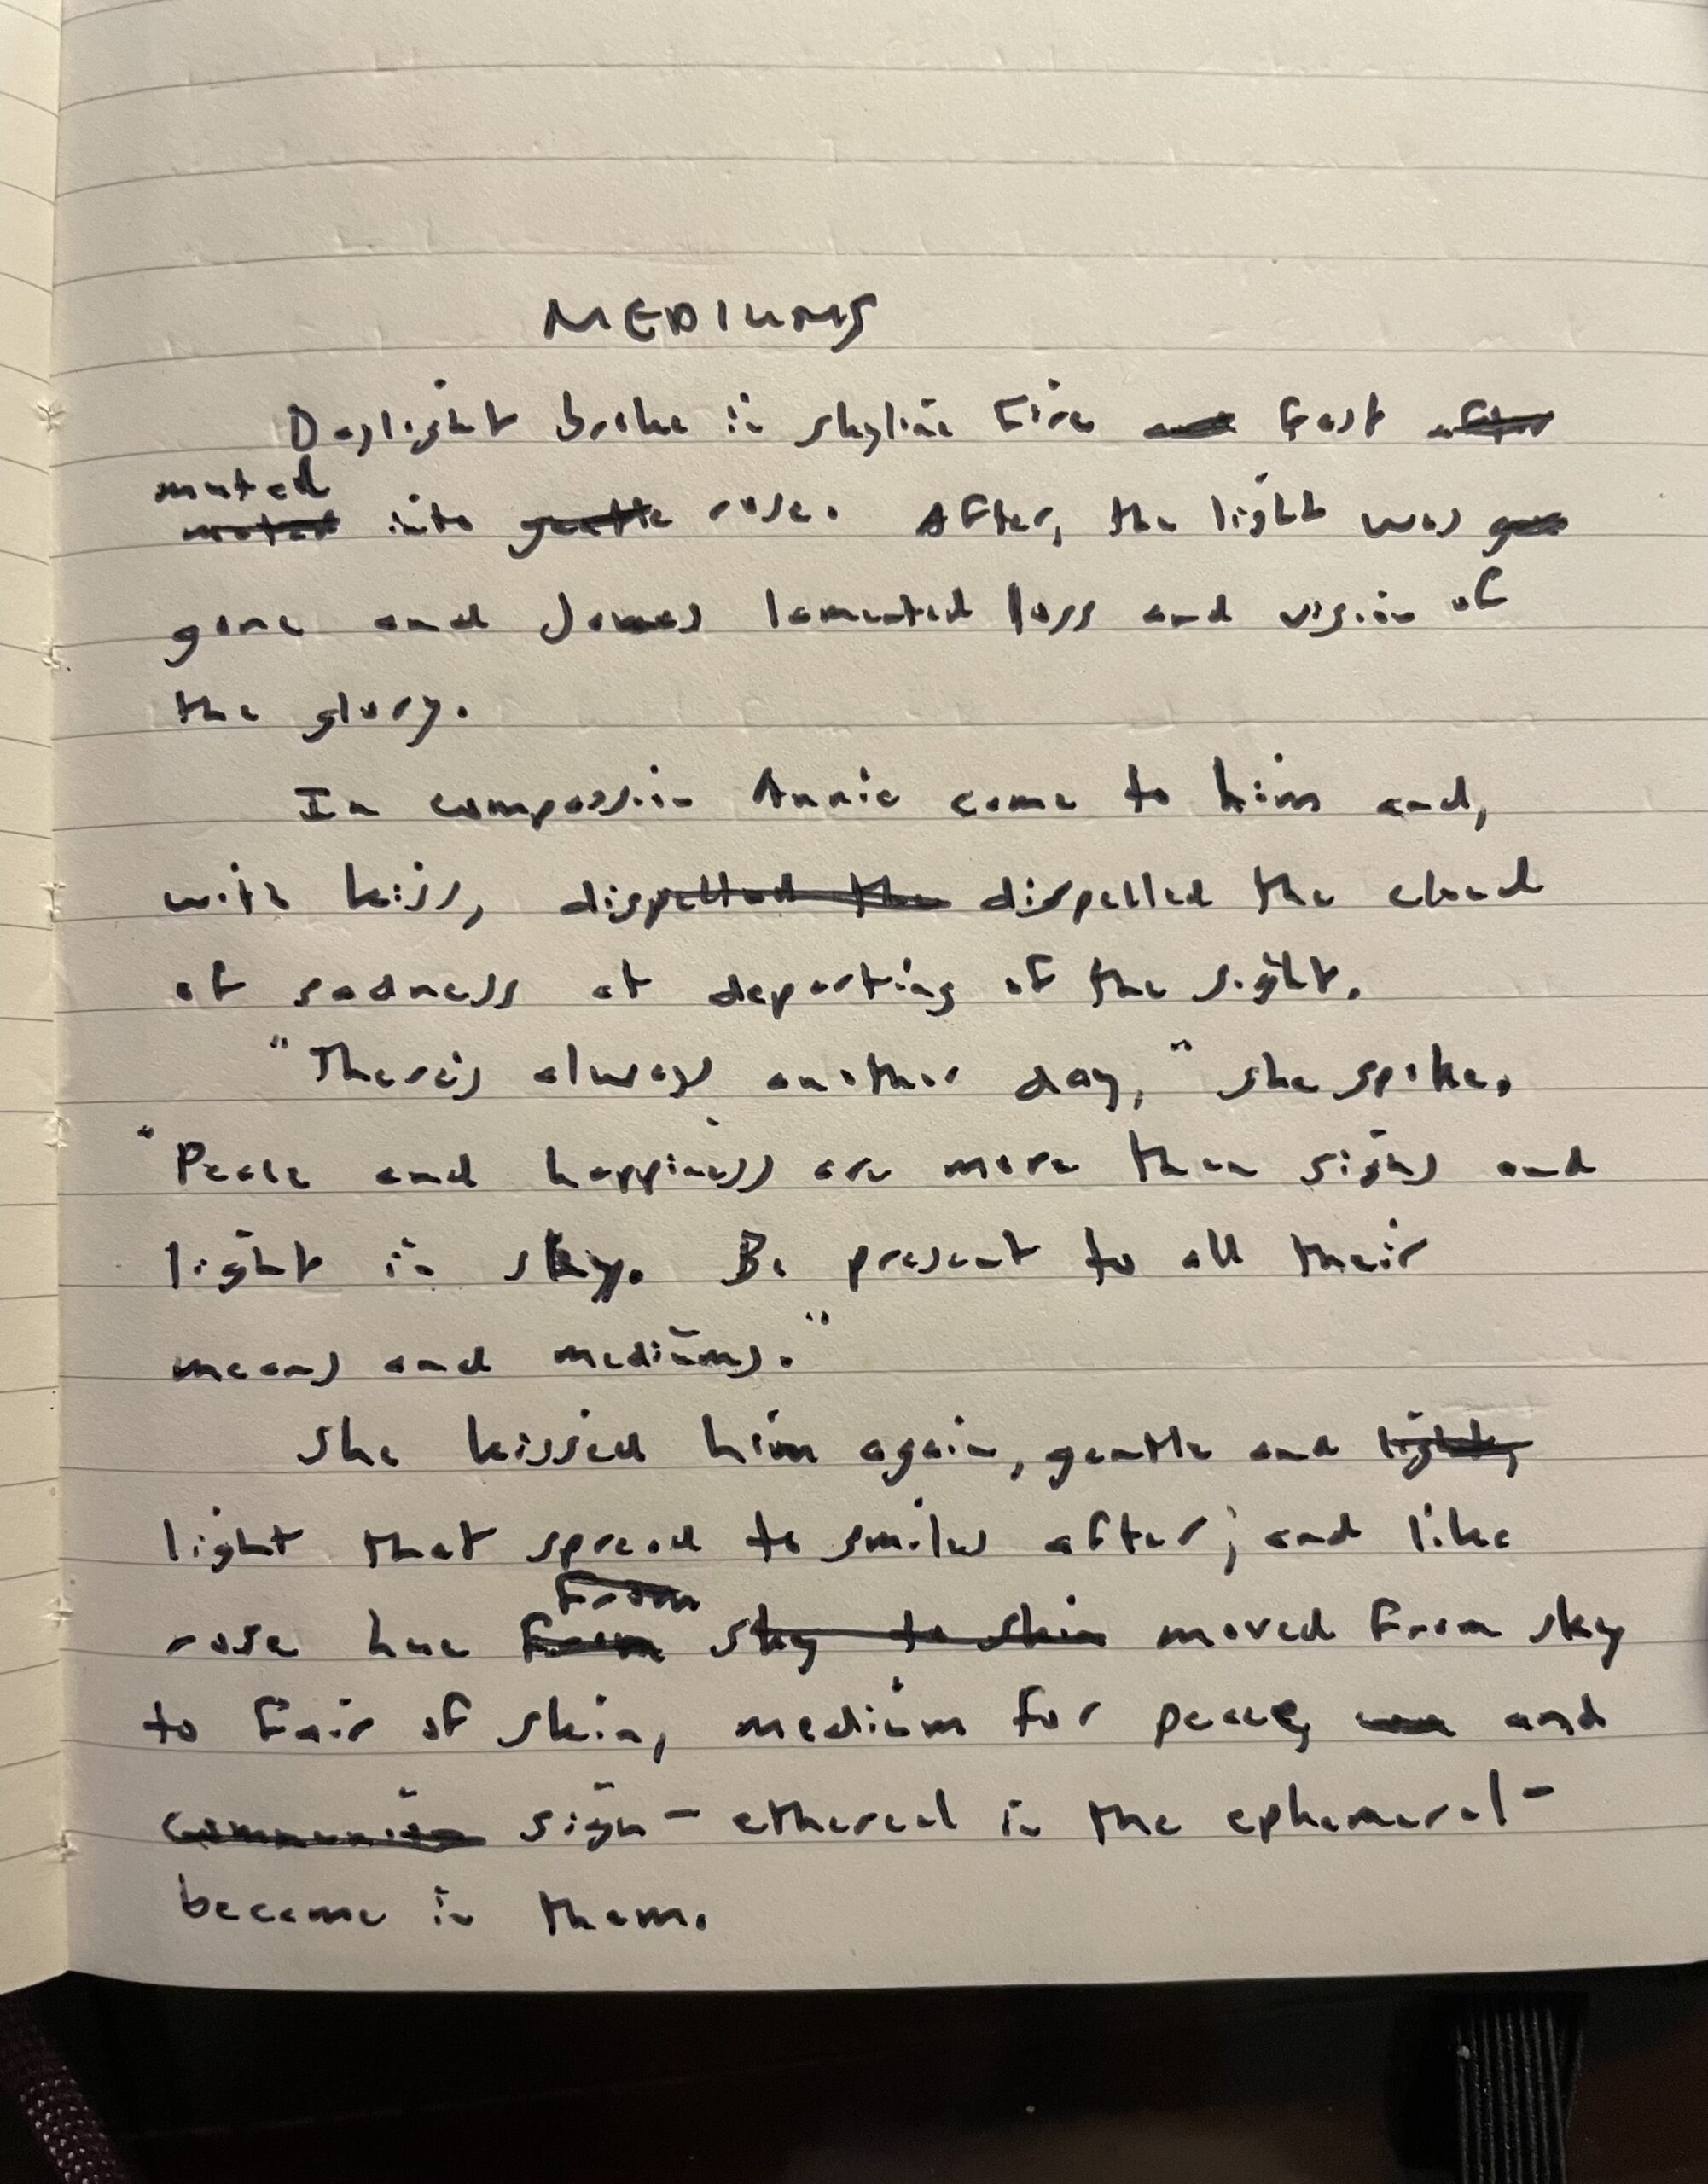 MEDIUMS
Daylight broke in skyline fire fast
muted
into gentle rose. After, the light was
gone and James lamented loss and vision of
the glory.
In compassion Annie came to him and,
with kiss, dispelled the dispelled the cloud
of sadness at departing of the sight.
"There's always another day," she spoke.
"Peace and happiness are more than signs and
light in sky. Be present to all their
means and mediums."
She kissed him again, gentle and lightly
light that spread to smiles after; and like
from
rose hue from sky to skin moved from sky
to fair of skin, medium for peace, and
communion sign - ethereal in the ephemeral -
became in them.